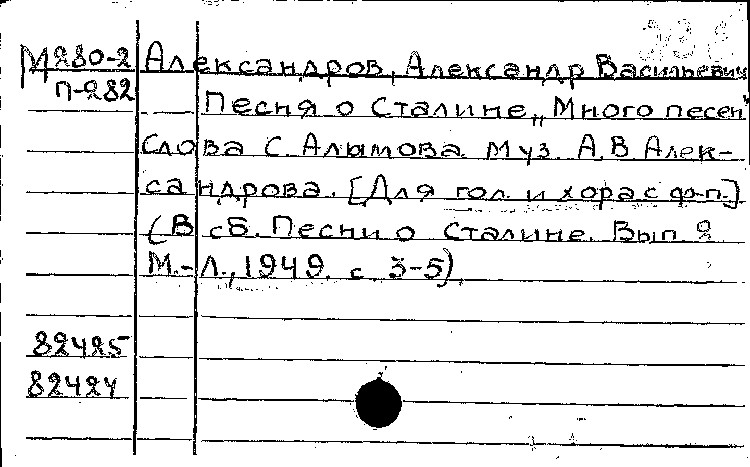 М280-2 Александров, Александр Васильевич
П-282 Песня о Сталине „Много песен"
Слова С. Алымова. Муз. А.В. Алек-
сандрова. [Для гол. и хора с ф-п.]
(В сб. Песни о Сталине. Вып. 2
М.-Л., 1949. с. 3-5).
82425
82424